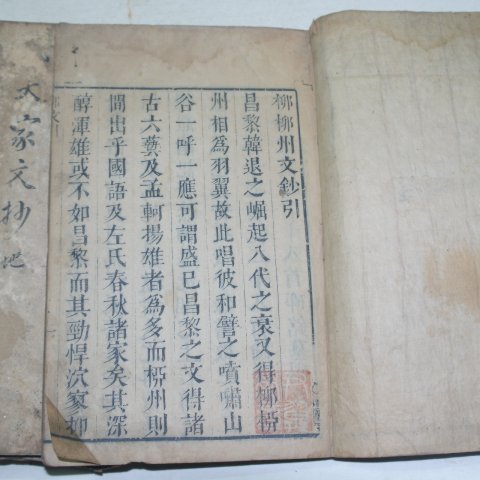 柳柳州文鈔引
昌黎韓退之崛起八代之衰又得柳柳
州相為羽翼故此唱彼和譬之噴嘯山
谷一呼一應可謂盛已昌黎之文得諸
古六藝及孟軻揚雄者為多而柳州則
間出乎國語及左氏春秋諸家矣其深
醇渾雄或不如昌黎而其勁悍泬寥抑
大家文抄
地